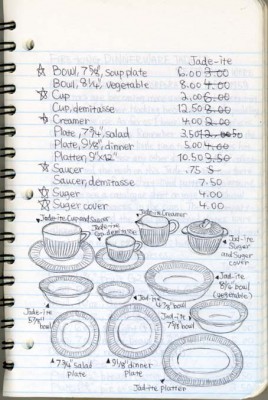 Jade-ite
☆ Bowl, 7 5/8", soup plate 6.00 3.00
Bowl, 8 1/4", vegetable 8.00 4.00
☆ Cup 2.00 6.00
Cup, demitasse 12.50 8.00
☆ Creamer 4.00 2.00
Plate, 7 3/4", salad 3.50
Plate, 9 1/8", dinner 5.00 4.00
Platter, 9"x12" 10.50 3.50
☆ Saucer .75
Saucer, demitasse 7.50
☆ Suger 4.00
☆ Suger cover 4.00
Jade-ite Cup and Saucer
Jade-ite Creamer
Jade-ite
Cup demitasse
Jad-ite
Sugar
and Sugar
cover
Jad-ite
8 1/4 bowl
(vegetable)
Jad-ite
4 7/8" bowl
Jade-ite
5 7/8"
bowl
Jad-ite
7 5/8 bowl
7 3/4 salad
plate
9 1/8" dinner
plate
Jad-ite platter